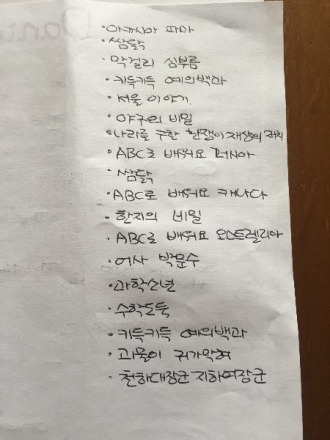 ·아카시아 파마
·쌈닭
·막걸리 심부름
·키득키득 예의백과
·서울 이야기
·야구의 비밀
·나라를 구한 재상의
·ABC로 배워요
·쌈닭
·ABC로 배워요 캐나다
·한지의 비밀
·ABC로 배워요 오스트레일리아
·어사 박문수
·과학소년
·수학도둑
·키득키득 예의백과
·귀가막혀
·천하대장군 지하여장군